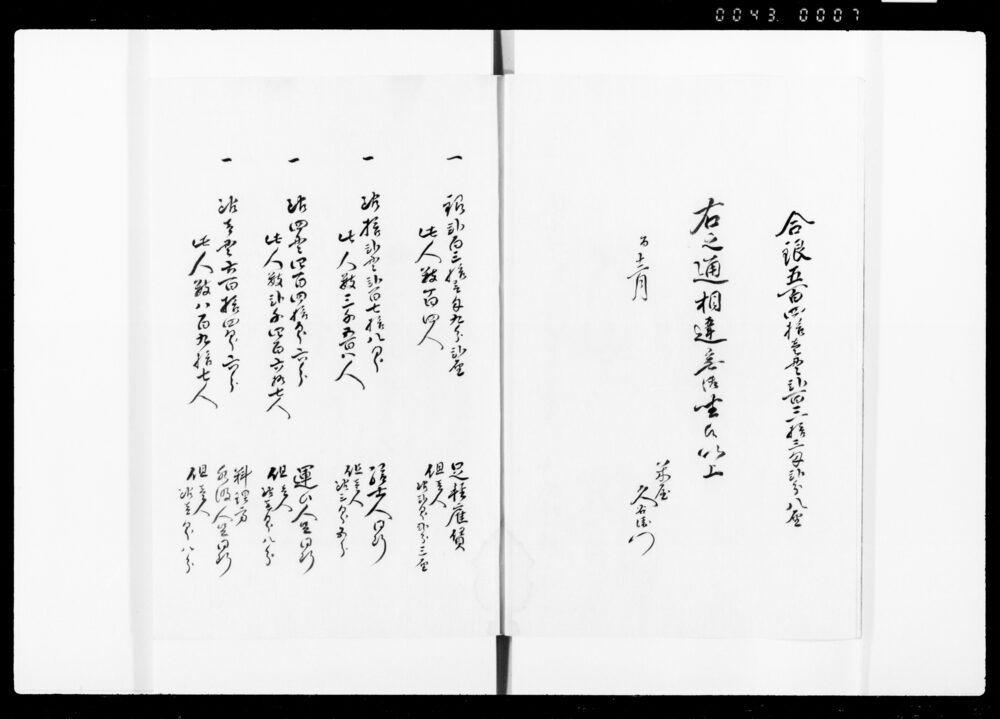 0043 0007
合銀五百四拾壱貫弐百六拾三匁弐分八厘
右之通相違無御座候以上
十二月
久右衛門
一 銀弐百三拾壱匁九分弐厘 足軽雇賃
此人数百四人 但壱人ニ付弐匁弐分三厘
一 銀拾弐貫弐百七拾八匁 人同断
此人数三千五百八人 但壱人ニ付三匁五分
一 銀四貫四百四拾匁六分 人足同断
此人数弐千四百六拾七人 但壱人ニ付壱匁八分
一 銀壱貫六百拾四匁六分 料理方水汲人足同断
此人数八百九拾七人 但壱人ニ付壱匁八分